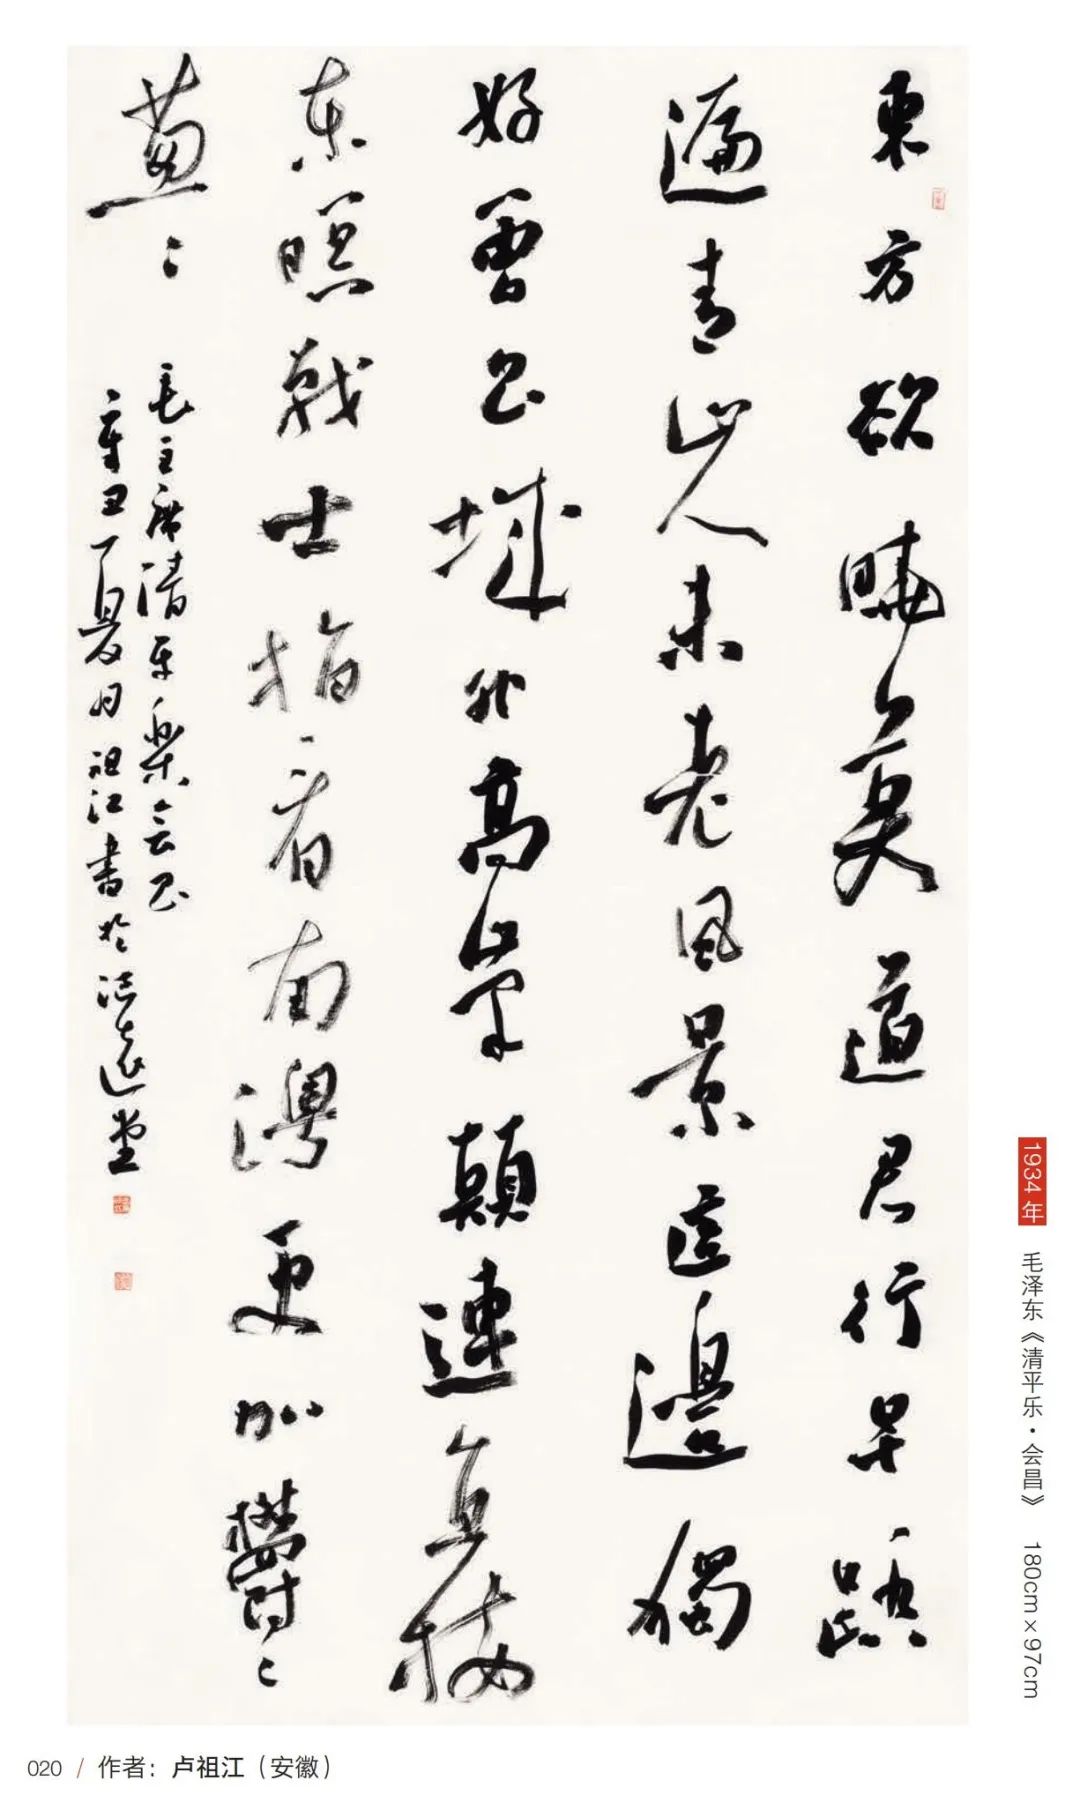 東方欲曉莫道君行早踏
遍青山人未老風景這邊獨
好會昌城外高峰顛連直接
東溟戰士指看南粵更加鬱〻
蔥〻
毛主席清平樂會昌
辛丑夏月祖江書於遠堂
1934年 毛泽东《清平乐·会昌》 180cm×97cm
020 / 作者：卢祖江（安徽）